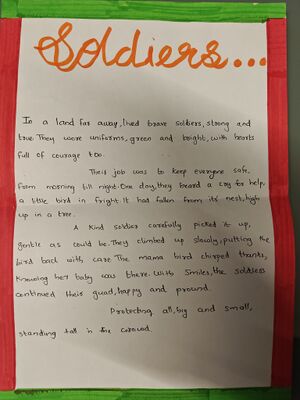 Soldiers...
In a land far away, lived brave soldiers, strong and
true. They wore uniforms, green and bright, with hearts
full of courage too.
Their job was to keep everyone safe,
from morning till night. One day, they heard a cry for help,
a little bird in fright. It had fallen from its nest, high
up in a tree.
A Kind soldier carefully picked it up,
gentle as could be. They climbed up slowly, putting the
bird back with care. The mama bird chirped thanks,
knowing her baby was there. With smiles, the soldiers
continued their guad, happy and pround.
Protecting all, big and small,
standing tall in the curowd.